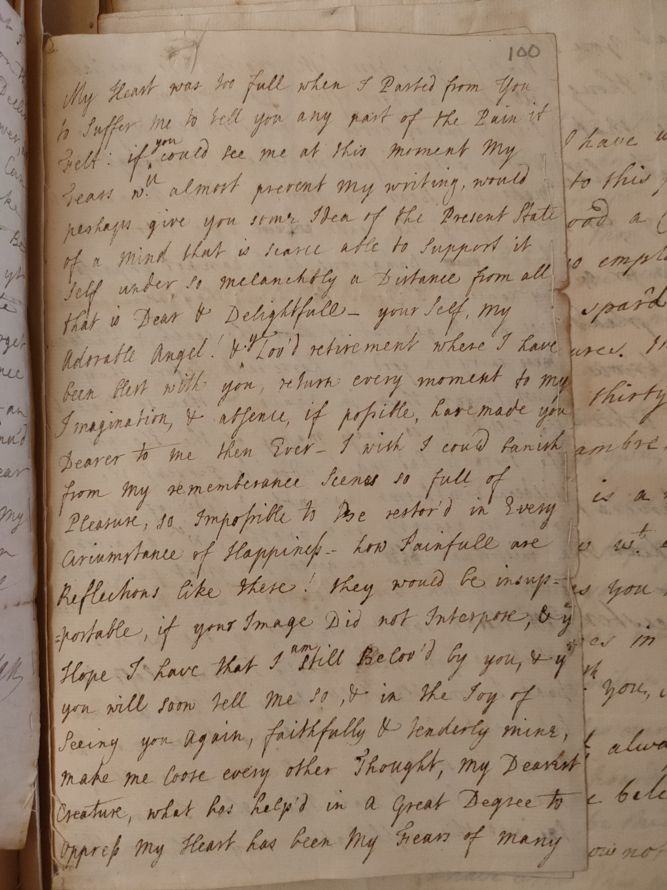 100
My Heart was too full when I Parted from You
to Suffer me to tell you any part of the Pain it
Felt: if you could see me at this moment My
Tears wch almost prevent my writing, would
perhaps give you some Idea of the Present State
of a Mind that is scarce able to Support it
Self under so melancholy a Distance from all
that is Dear & Delightfull – your Self, my
Adorable Angel! & ye Lov'd retirement where I have
been blest with you, return every moment to my
Imagination, & absence, if possible, have made you
Dearer to me then Ever – I wish I could banish
from my rememberance Scenes so full of
Pleasure, so Impossible to be restor'd in Every
Circumstance of Happiness – how Painfull are
Reflections like these! they would be insup=
=portable, if your Image Did not Interpose, & ye
Hope I have that I am still Belov'd by you, & yt
you will soon tell me so, & in the Joy of
Seeing you Again, faithfully & tenderly mine,
make me loose every other Thought, My Dearest
Creature, what has help'd in a Great Degree to
oppress my Heart has been My Fears of many